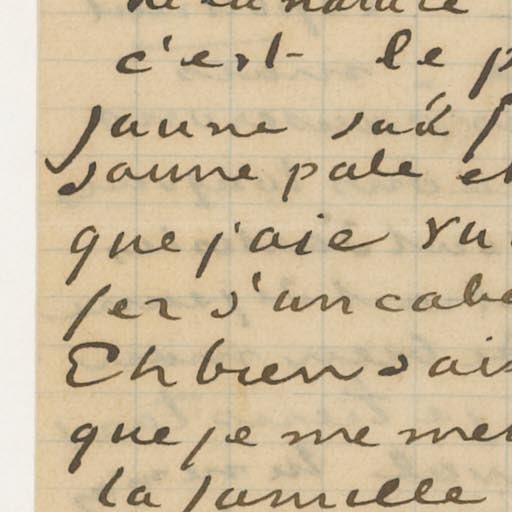 de la nature
c'est le p
jaune sur f
jaune pale et
que j'aie vu
fer d'un caba
Eh bien sais
que je me met
la famille